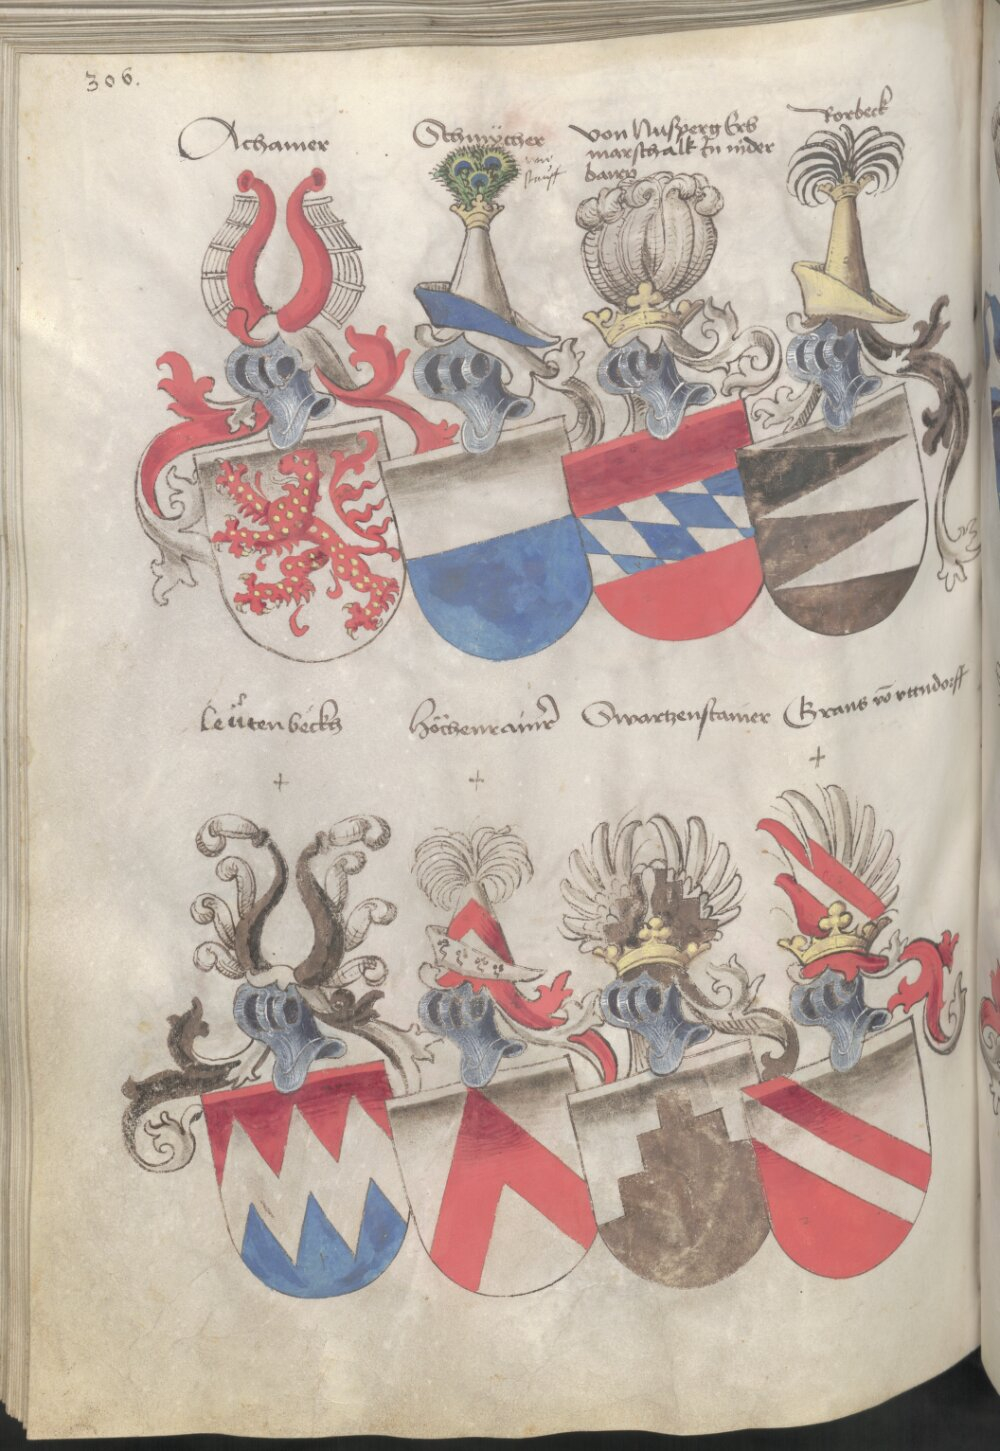 306.
Achamer
Schmýcher
von Nußperg Erb
marschalk In nider
bairn
Rorbeck
Leŭtenbeckh
Höchenrainer
Swartzenstainer
Grans võ vttndorff